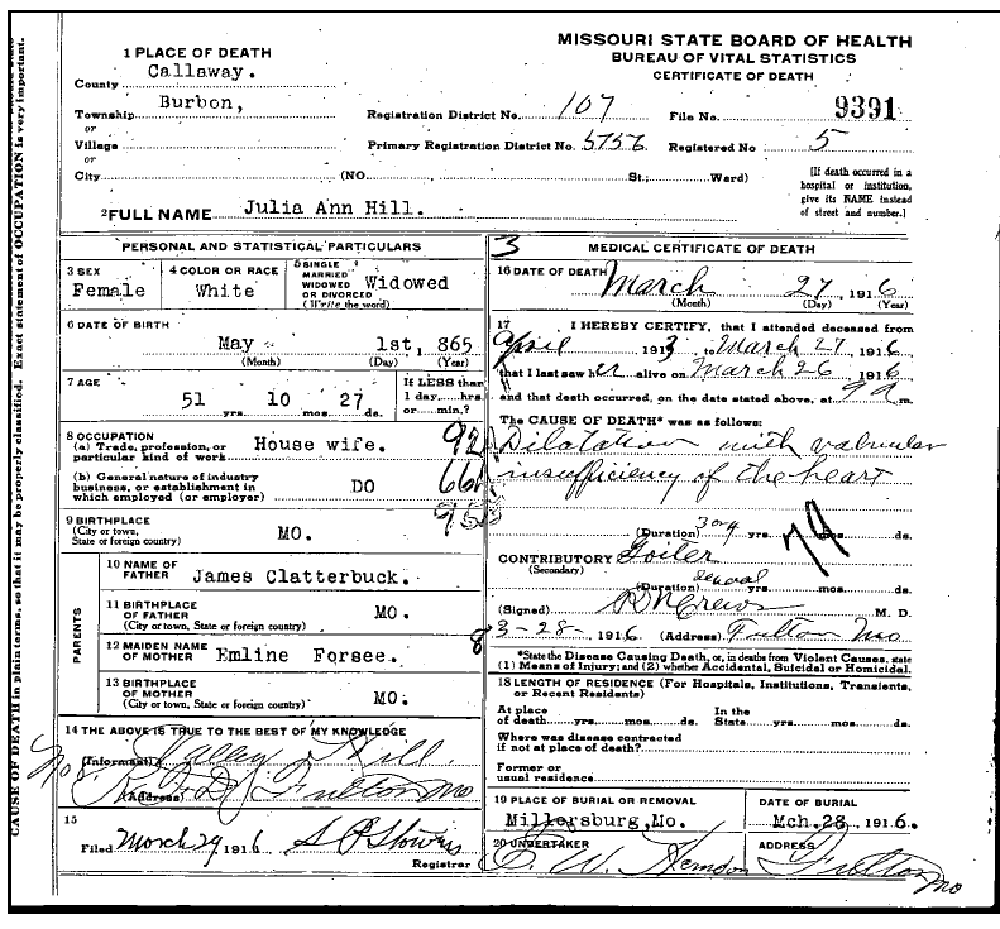 CAUSE OF DEATH in plain terms, so that it may be properly classified. Exact statement of OCCUPATION is very important.
MISSOURI STATE BOARD OF HEALTH
BUREAU OF VITAL STATISTICS
CERTIFICATE OF DEATH
1 PLACE OF DEATH
County Callaway.
Township Burbon,
or
Village
or
City (NO. St.; Ward)
Registration District No. 107 File No. 9391
Primary Registration District No. 5756 Registered No 5
[If death occurred in a
hospital or institution,
give its NAME instead
of street and number.]
2 FULL NAME Julia Ann Hill.
PERSONAL AND STATISTICAL PARTICULARS
3 SEX Female
4 COLOR OR RACE White
5 SINGLE
MARRIED
WIDOWED
OR DIVORCED
(Write the word)
Widowed
6 DATE OF BIRTH
May 1st, 865
(Month) (Day) (Year)
7 AGE
51 yrs. 10 mos. 27 ds.
If LESS than
1 day,....hrs.
or....min.?
8 OCCUPATION
(a) Trade, profession, or
particular kind of work House wife.
(b) General nature of industry
business, or establishment in
which employed (or employer) DO
92
9 BIRTHPLACE
(City or town,
State or foreign country) MO.
PARENTS
10 NAME OF
FATHER James Clatterbuck.
11 BIRTHPLACE
OF FATHER
(City or town, State or foreign country) MO.
12 MAIDEN NAME
OF MOTHER Emline Forsee.
8
13 BIRTHPLACE
OF MOTHER
(City or town, State or foreign country) MO.
14 THE ABOVE IS TRUE TO THE BEST OF MY KNOWLEDGE
(Informant) Hill
(Address) R F D Fulton Mo
15
Filed March 29 1916
Registrar
3
MEDICAL CERTIFICATE OF DEATH
16 DATE OF DEATH March 27, 1916
(Month) (Day) (Year)
17 I HEREBY CERTIFY, that I attended deceased from
April 1913 to March 27, 1916
that I last saw her alive on March 26, 1916
and that death occurred, on the date stated above, at 9 a m.
The CAUSE OF DEATH* was as follows:
Dilatation with valvular
insufficiency of the heart
(Duration) 3 or 4 yrs. mos. ds.
79
CONTRIBUTORY Goiter
(Secondary)
(Duration) several yrs. mos. ds.
(Signed) R N Crews M. D.
3-28-1916 (Address) Fulton Mo
*State the Disease Causing Death, or, in deaths from Violent Causes, state
(1) Means of Injury; and (2) whether Accidental, Suicidal or Homicidal.
18 LENGTH OF RESIDENCE (For Hospitals, Institutions, Transients,
or Recent Residents)
At place
of death yrs. mos. ds.
In the
State yrs. mos. ds.
Where was disease contracted
if not at place of death?
Former or
usual residence
19 PLACE OF BURIAL OR REMOVAL
Millersburg, Mo.
DATE OF BURIAL
Mch. 28, 1916.
20 UNDERTAKER
W. Herndon
ADDRESS
Fulton Mo